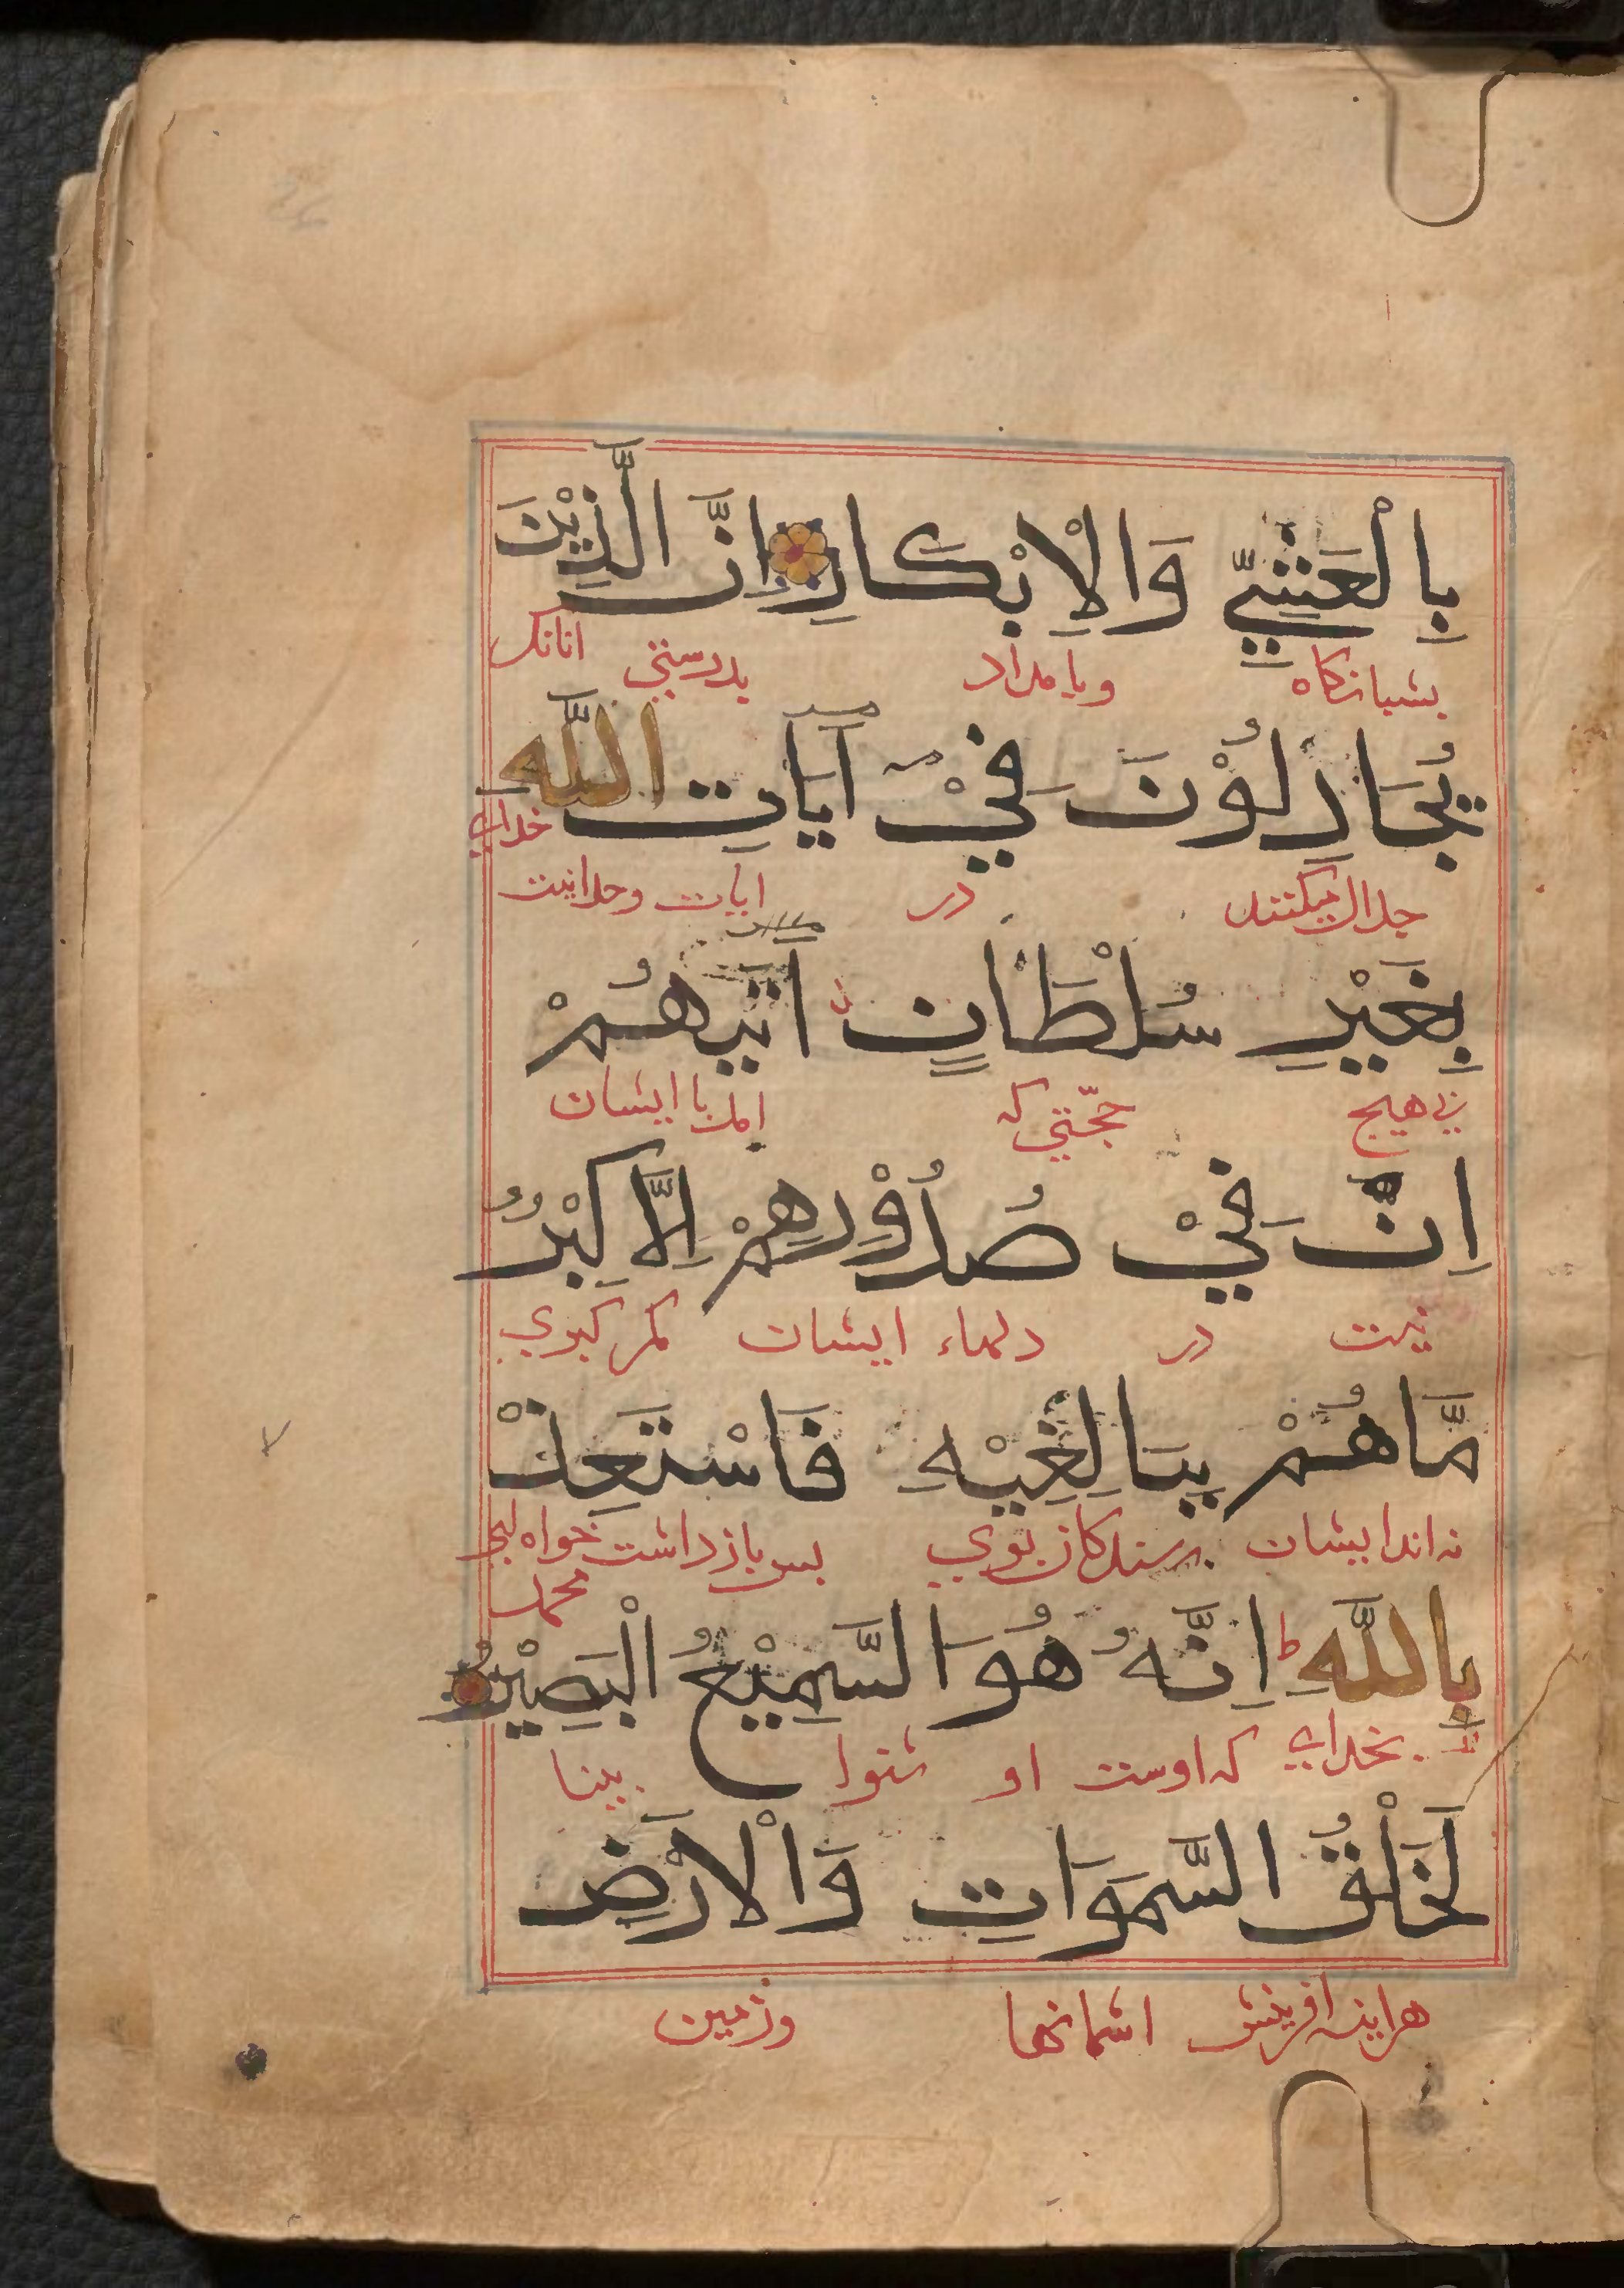 بِالْعَشِيِّ وَالْاِبْكَارِ اِنَّ الَّذِيْنَ
بشبانكاه وبامداد بدرستي انانكه
يُجَادِلُوْنَ فِيْ آيَاتِ اللّٰهِ
خداي
جدال ميكنند در ايات وحدانيت
بِغَيْرِ سُلْطَانٍ اَتٰيهُمْ
بي هيچ حجّتي كه امد با ايشان
اِنْ فِيْ صُدُوْرِهِمْ اِلَّا كِبْرٌ
نيست در دلهاء ايشان مكر كبري
مَّا هُمْ بِبَالِغِيْهِ فَاسْتَعِذْ
نه اندايشان رسندكان بوي پس بازداشت خواه اي
محمد
بِاللّٰهِ ط اِنَّهُ هُوَ السَّمِيْعُ الْبَصِيْرُ
بخداي كه اوست او شنوا بينا
لَخَلْقُ السَّمَوَاتِ وَالْاَرْضِ
هراينه افرينش اسمانها وزمين